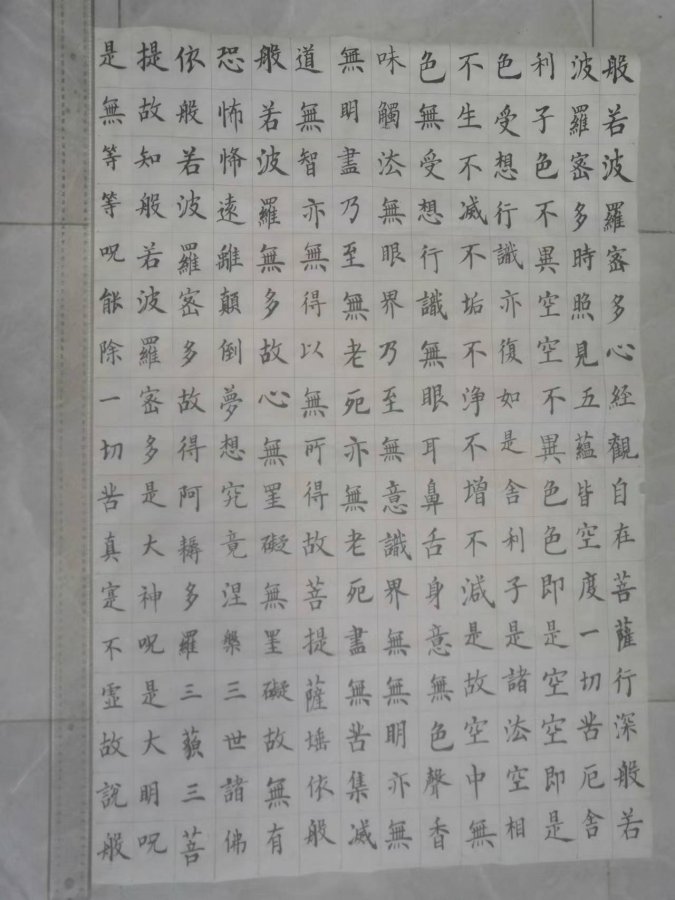 般若波羅密多心経觀自在菩薩行深般若
波羅密多時照見五蘊皆空度一切苦厄舍
利子色不異空空不異色色即是空空即是
色受想行識亦復如是舍利子是諸法空相
不生不滅不垢不浄不增不減是故空中無
色無受想行識無眼耳鼻舌身意無色聲香
味觸法無眼界乃至無意識界無無明亦無
無明盡乃至無老死亦無老死盡無苦集滅
道無智亦無得以無所得故菩提薩埵依般
般若波羅無多故心無罣礙無罣礙故無有
恐怖悕遠離顛倒夢想究竟涅槃三世諸佛
依般若波羅密多故得阿耨多羅三藐三菩
提故知般若波羅密多是大神呪是大明呪
是無等等呪能除一切苦真寔不虛故說般